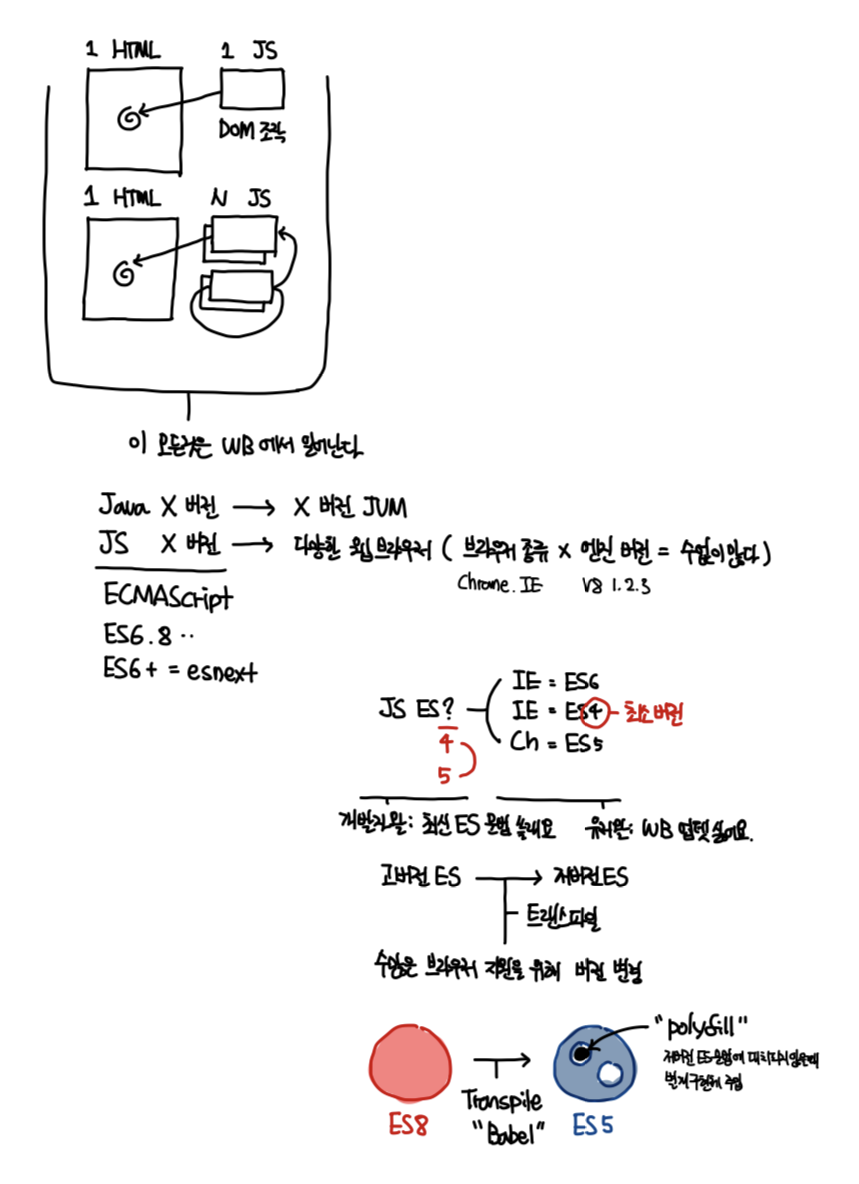 1 HTML 1 JS
DOM 조작
1 HTML N JS
이 모든것은 WB에서 일어난다.
Java X 버전 → X 버전 JVM
JS X 버전 → 다양한 웹브라우저 ( 브라우저 종류 × 엔진 버전 = 수없이많다 )
Chrome. IE V8 1.2.3
ECMAScript
ES6.8 ..
ES6+ = esnext
IE = ES6
JS ES? IE = ES4 - 최소버전
4 Ch = ES5
5
개발자왈: 최신 ES 문법 쓸래요 유저왈: WB 업뎃 싫어요.
고버전 ES → 저버전 ES
트랜스파일
수많은 브라우저 지원을 위해 버전 변경
"polyfill"
저버전 ES문법에 대치되지않은때
구현체 주입
Transpile
"Babel"
ES8 ES5